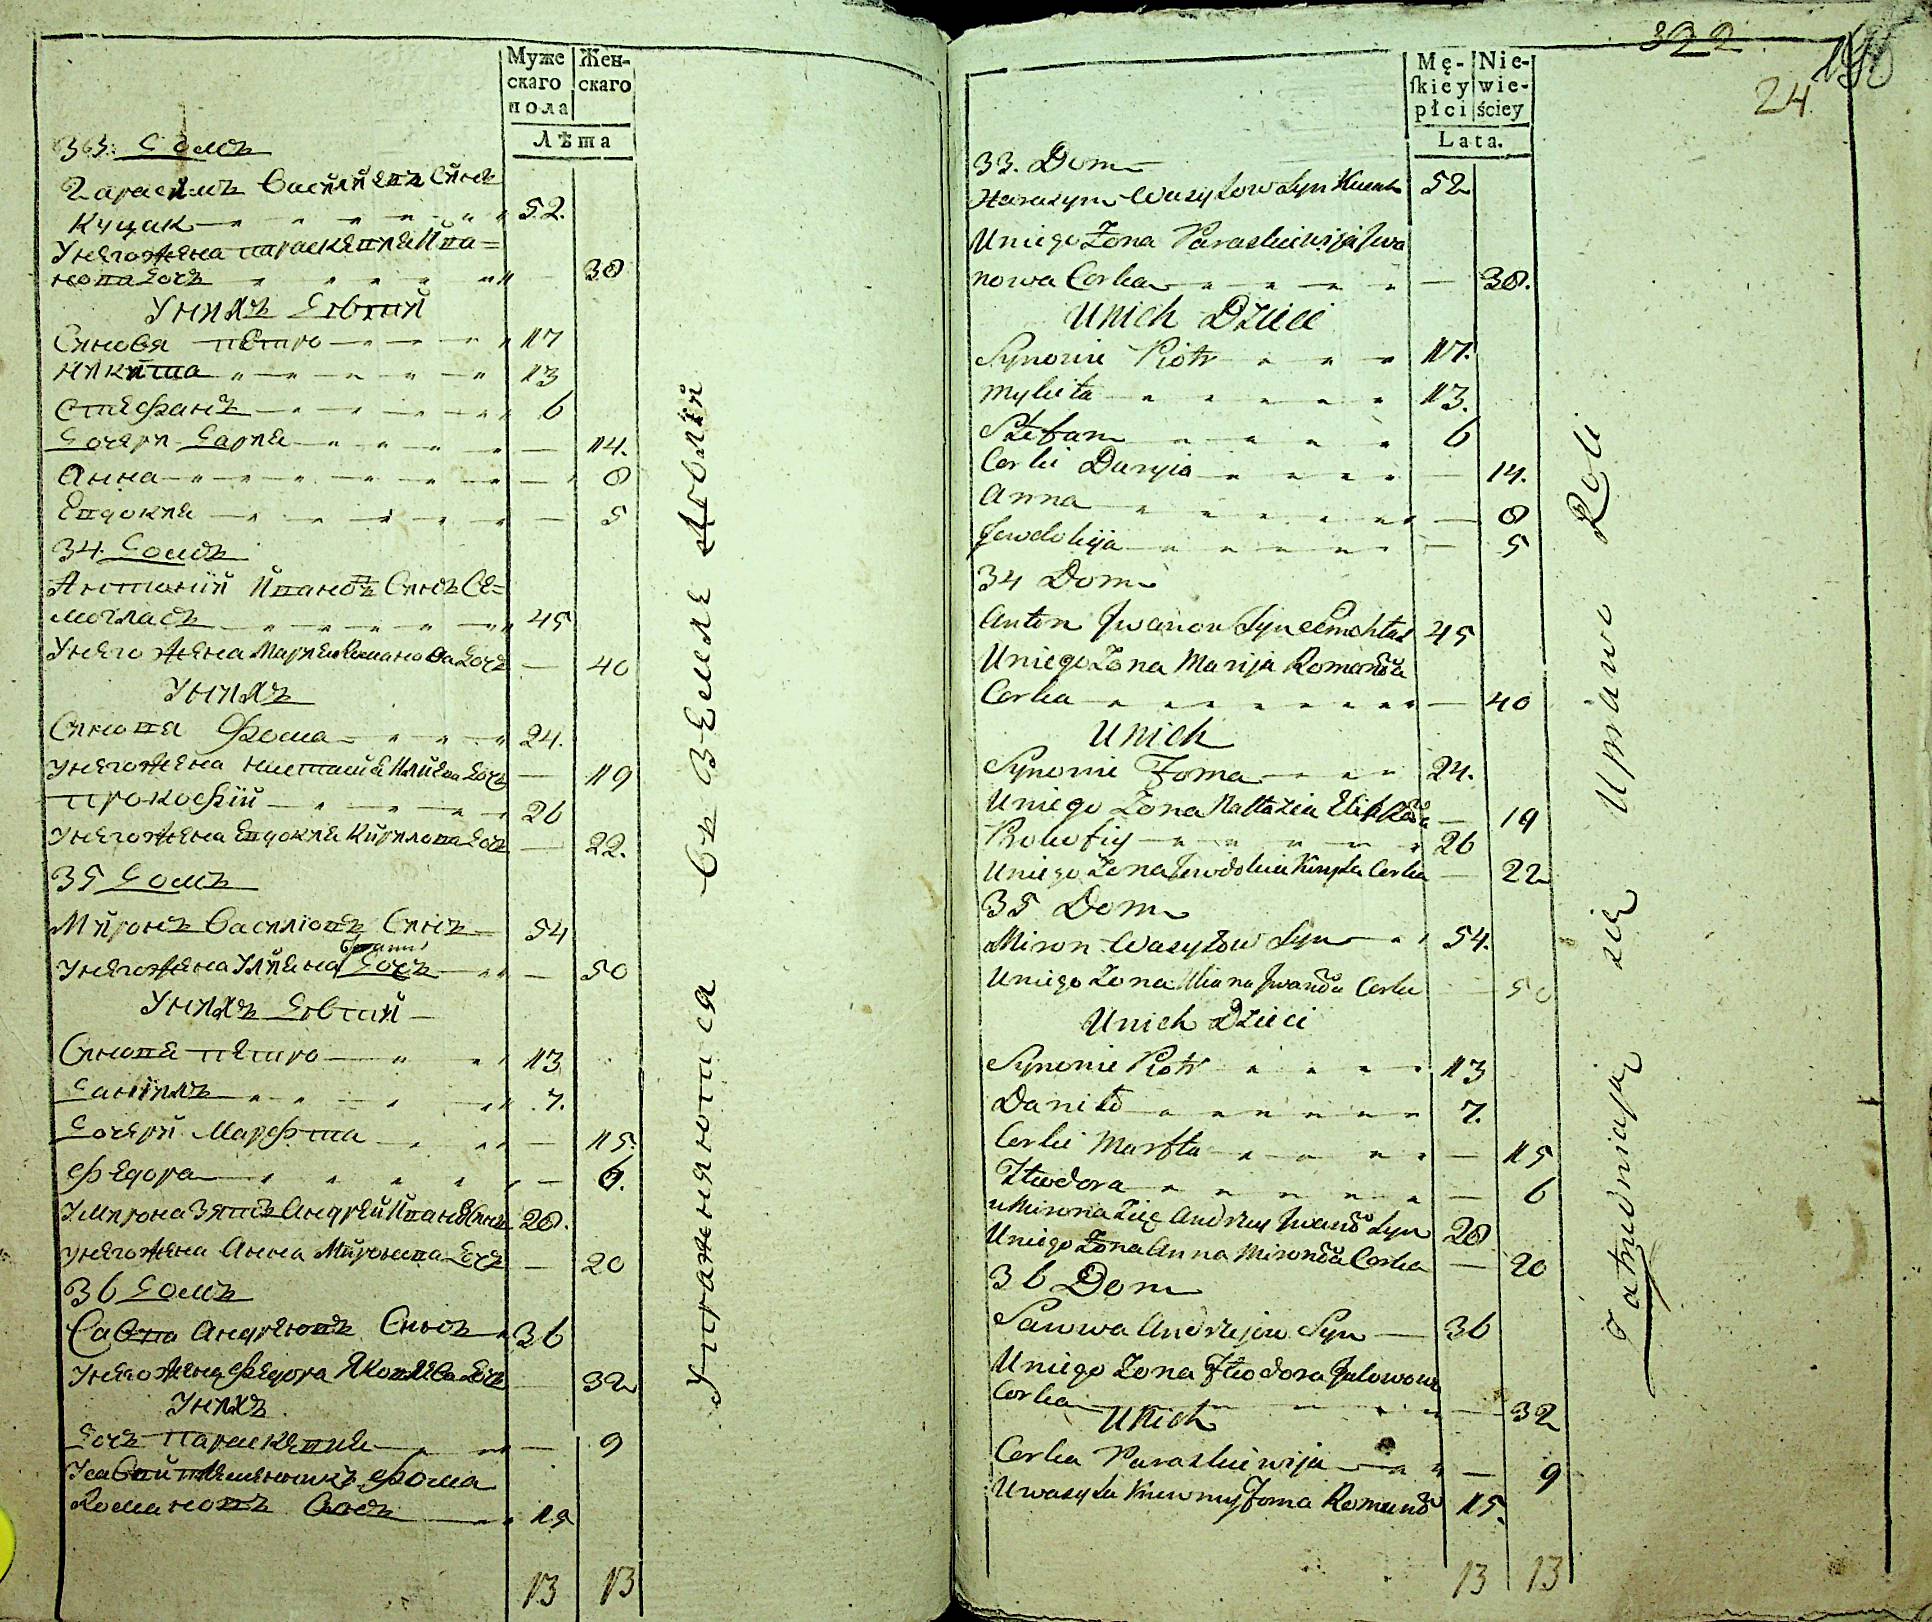 Муже скаго пола
Жен- скаго
Лѣта
33. Домъ
Гарасимъ Василиевъ Синъ
Куцак 52.
Унего жена параскевия Ива=
нова Дочъ 38
Унихъ Дѣтий
Синовя петро 17
Никита 13
Стефанъ 6
Дочери Дария 14.
Анна 8
Евдокия 5
34. Домъ
Антоний Иванов Синъ Се=
могласъ 45
Унего жена Мария Романова Дочъ 40
Унихъ
Синовя Фома 24.
Унего жена Настасия Илиева Дочъ 19
прокофий 26
Унего жена Евдокия Кирилова Дочъ 22.
35 Домъ
Миронъ Василіовъ Синъ 54
Унего жена Улияна Дочъ 50
Унихъ Дѣтий
Синовя петро 13
Данилъ 7.
Дочери Марфта 15.
Федора 6.
Умирона Зять Андрей Иванов Синъ 28.
Унего жена Анна Миронова Дочъ 20
36 Домъ
Савва Андреювъ Синъ 36
Унего жена Федора Яковлева Дочъ 32
Унихъ
Дочъ параскевия 9
племенникъ Фома
Романовъ Синъ 15
13 13
Упражняются въ Земледѣлии
322
24
Mę- skiey płci
Nie- wie- ściey
Lata.
33. Dom
Harasym Wasyłow Syn Kucak 52
Uniego Żona Paraskiewija Iwa
nowa Corka 38.
Unich Dzieci
Synowie Piotr 17.
Mykita 13.
Stefan 6
Corki Daryia 14.
Anna 8
Jewdokija 5
34 Dom
Anton Iwanow Syn Semohłas 45
Uniego Żona Marija Romanowa
Corka 40
Unich
Synowie Foma 24.
Uniego Żona Nastazia 19
Prokofiy 26
Uniego Żona Jewdokia Kiryła Corka 22
35 Dom
Miron Wasyłow Syn 54.
Uniego Żona Uliana Iwanowa Corka 50
Unich Dzieci
Synowie Piotr 13
Daniło 7.
Corki Marfta 15
Fteodora 6
uMirona Zięć Andrzey Iwanow Syn 28
Uniego Żona Anna Mironowa Corka 20
36 Dom
Sawwa Andrzejow Syn 36
Uniego Żona Fteodora
Corka 32
Unich
Corka Paraskiewija 9
Uwasyla Krewny Foma Romanow 15.
13 13
Zatrudniają się Uprawą Roli